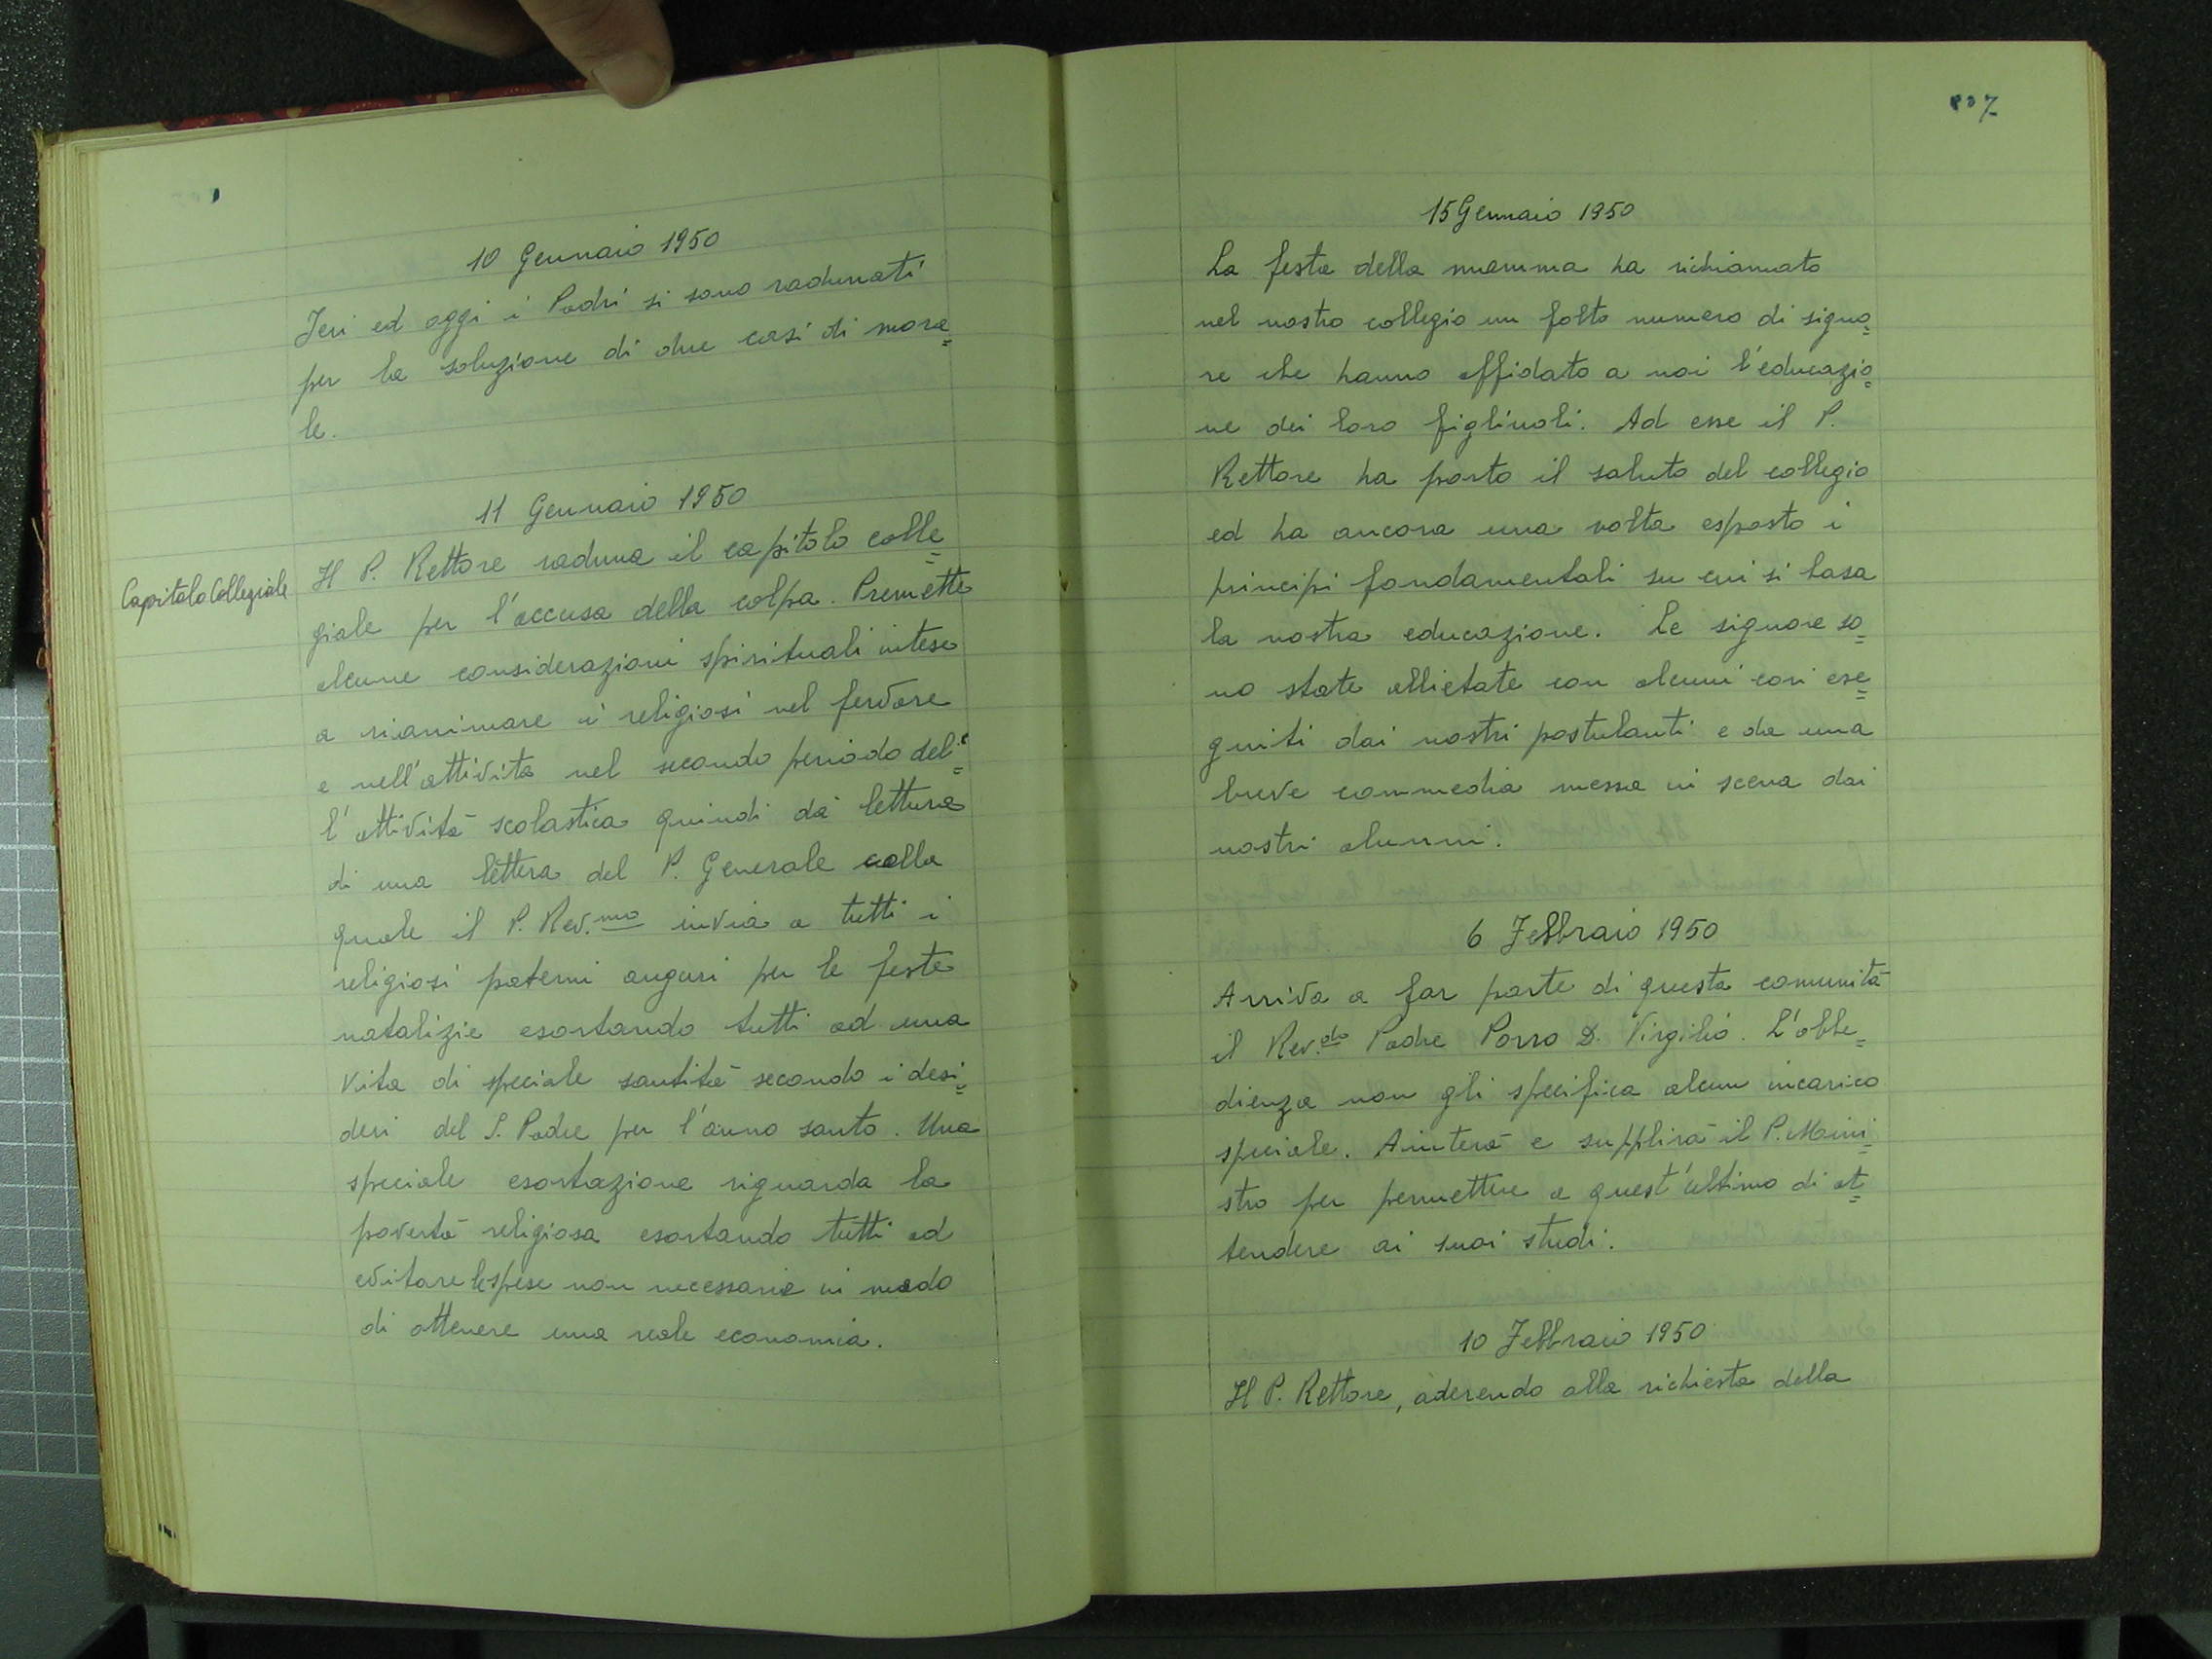 10 Gennaio 1950
Ieri ed oggi i Padri si sono radunati
per la soluzione di due casi di mora=
le.
11 Gennaio 1950
Capitolo Collegiale
Il P. Rettore raduna il capitolo colle=
giale per l'accusa della colpa. Premette
alcune considerazioni spirituali intese
a rianimare i religiosi nel fervore
e nell'attività nel secondo periodo del=
l'attività scolastica quindi dà lettura
di una lettera del P. Generale colla
quale il P. Rev.mo invia a tutti i
religiosi paterni auguri per le feste
natalizie esortando tutti ad una
vita di speciale santità secondo i desi=
deri del S. Padre per l'anno santo. Una
speciale esortazione riguarda la
povertà religiosa esortando tutti ad
evitare le spese non necessarie in modo
di ottenere una reale economia.
15 Gennaio 1950
La festa della mamma ha richiamato
nel nostro collegio un folto numero di signo=
re che hanno affidato a noi l'educazio=
ne dei loro figliuoli. Ad esse il P.
Rettore ha porto il saluto del collegio
ed ha ancora una volta esposto i
principi fondamentali su cui si basa
la nostra educazione. Le signore so=
no state allietate con alcuni cori ese=
guiti dai nostri postulanti e da una
breve commedia messa in scena dai
nostri alunni.
6 Febbraio 1950
Arriva a far parte di questa comunità
il Rev.do Padre Porro D. Virgilio. L'obbe=
dienza non gli specifica alcun incarico
speciale. Aiuterà e supplirà il P. Mini=
stro per permettere a quest'ultimo di at=
tendere ai suoi studi.
10 Febbraio 1950
Il P. Rettore, aderendo alla richiesta della